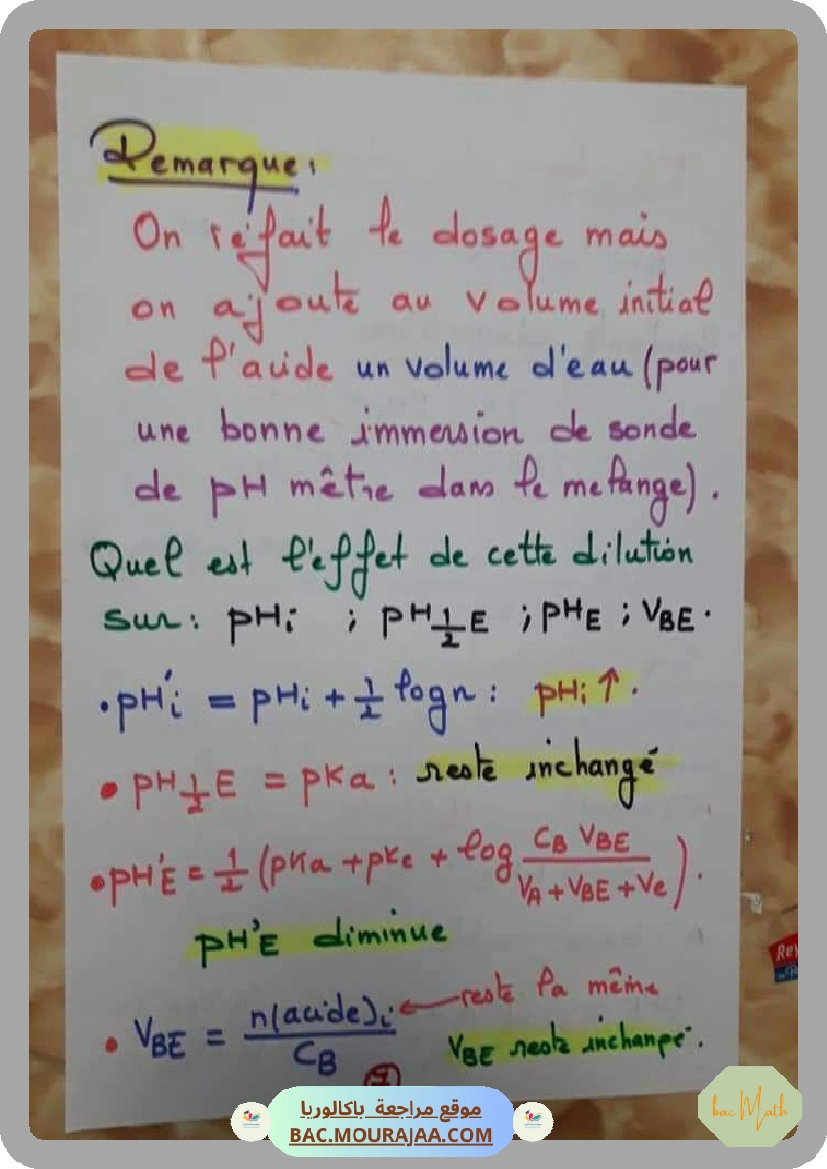 Remarque:
On refait le dosage mais
on ajoute au volume initial
de l'acide un volume d'eau (pour
une bonne immersion de sonde
de pH mètre dans le melange).
Quel est l'effet de cette dilution
sur: pHi ; pH1/2E ; pHE ; VBE.
• pH'i = pHi + 1/2 log n : pHi ↑.
• pH1/2E = pKa : reste inchangé
• pH'E = 1/2 (pKa + pKe + log (CB VBE)/(VA + VBE + Ve)).
pH'E diminue
• VBE = n(acide)i / CB ← reste la même
VBE reste inchangé.
7
موقع مراجعة باكالوريا
BAC.MOURAJAA.COM
bac Math